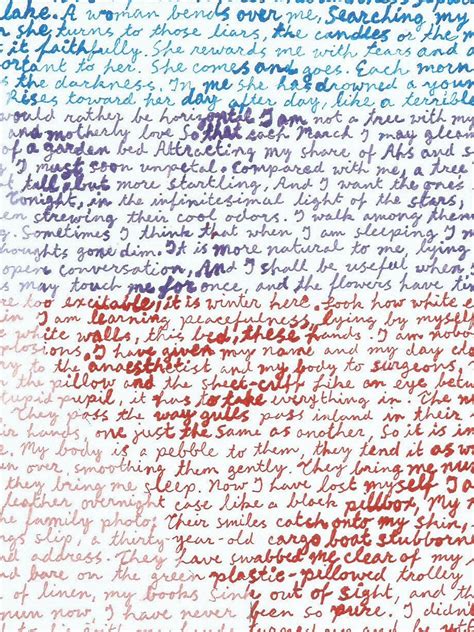 lake. A woman bends over me, Searching my
she turns to those liars, the candles or the m
it faithfully. She rewards me with tears and
ortant to her. She comes and goes. Each morn
s the darkness. In me she has drowned a youn
Rises toward her day after day, like a terribl
would rather be horizontal I am not a tree with my
and motherly love So that each March I may gleam
of a garden bed Attracting my share of Ahs and s
I must soon unpetal. Compared with me, a tree
t tall, but more startling, And I want the ones
Tonight, in the infinitesimal light of the stars,
en strewing their cool odors. I walk among them
g. Sometimes I think that when I am sleeping I m
houghts gone dim. It is more natural to me, lying
open conversation, And I shall be useful when
s may touch me for once, and the flowers have tim
re too excitable, it is winter here. Look how white e
n. I am learning peacefulness, lying by myself
e white walls, this bed, these hands. I am nob
plosions. I have given my name and my day clo
ry to the anaesthetist and my body to surgeons.
n the pillow and the sheet-cuff Like an eye betw
tupid pupil, it has to take everything in. The n
They pass the way gulls pass inland in their
ir hands, one just the same as another, So it is im
e. My body is a pebble to them, they tend it as w
un over, smoothing them gently. They bring me num
they bring me sleep. Now I have lost myself I a
leather overnight case like a black pillbox, My
he family photo; Their smiles catch onto my skin,
ngs slip, a thirty-year-old cargo boat stubborn
nd address. They have swabbed me clear of my
nd bare on the green plastic-pillowed trolley
of linen, my books Sink out of sight, and th
nun now, I have never been so pure. I didn